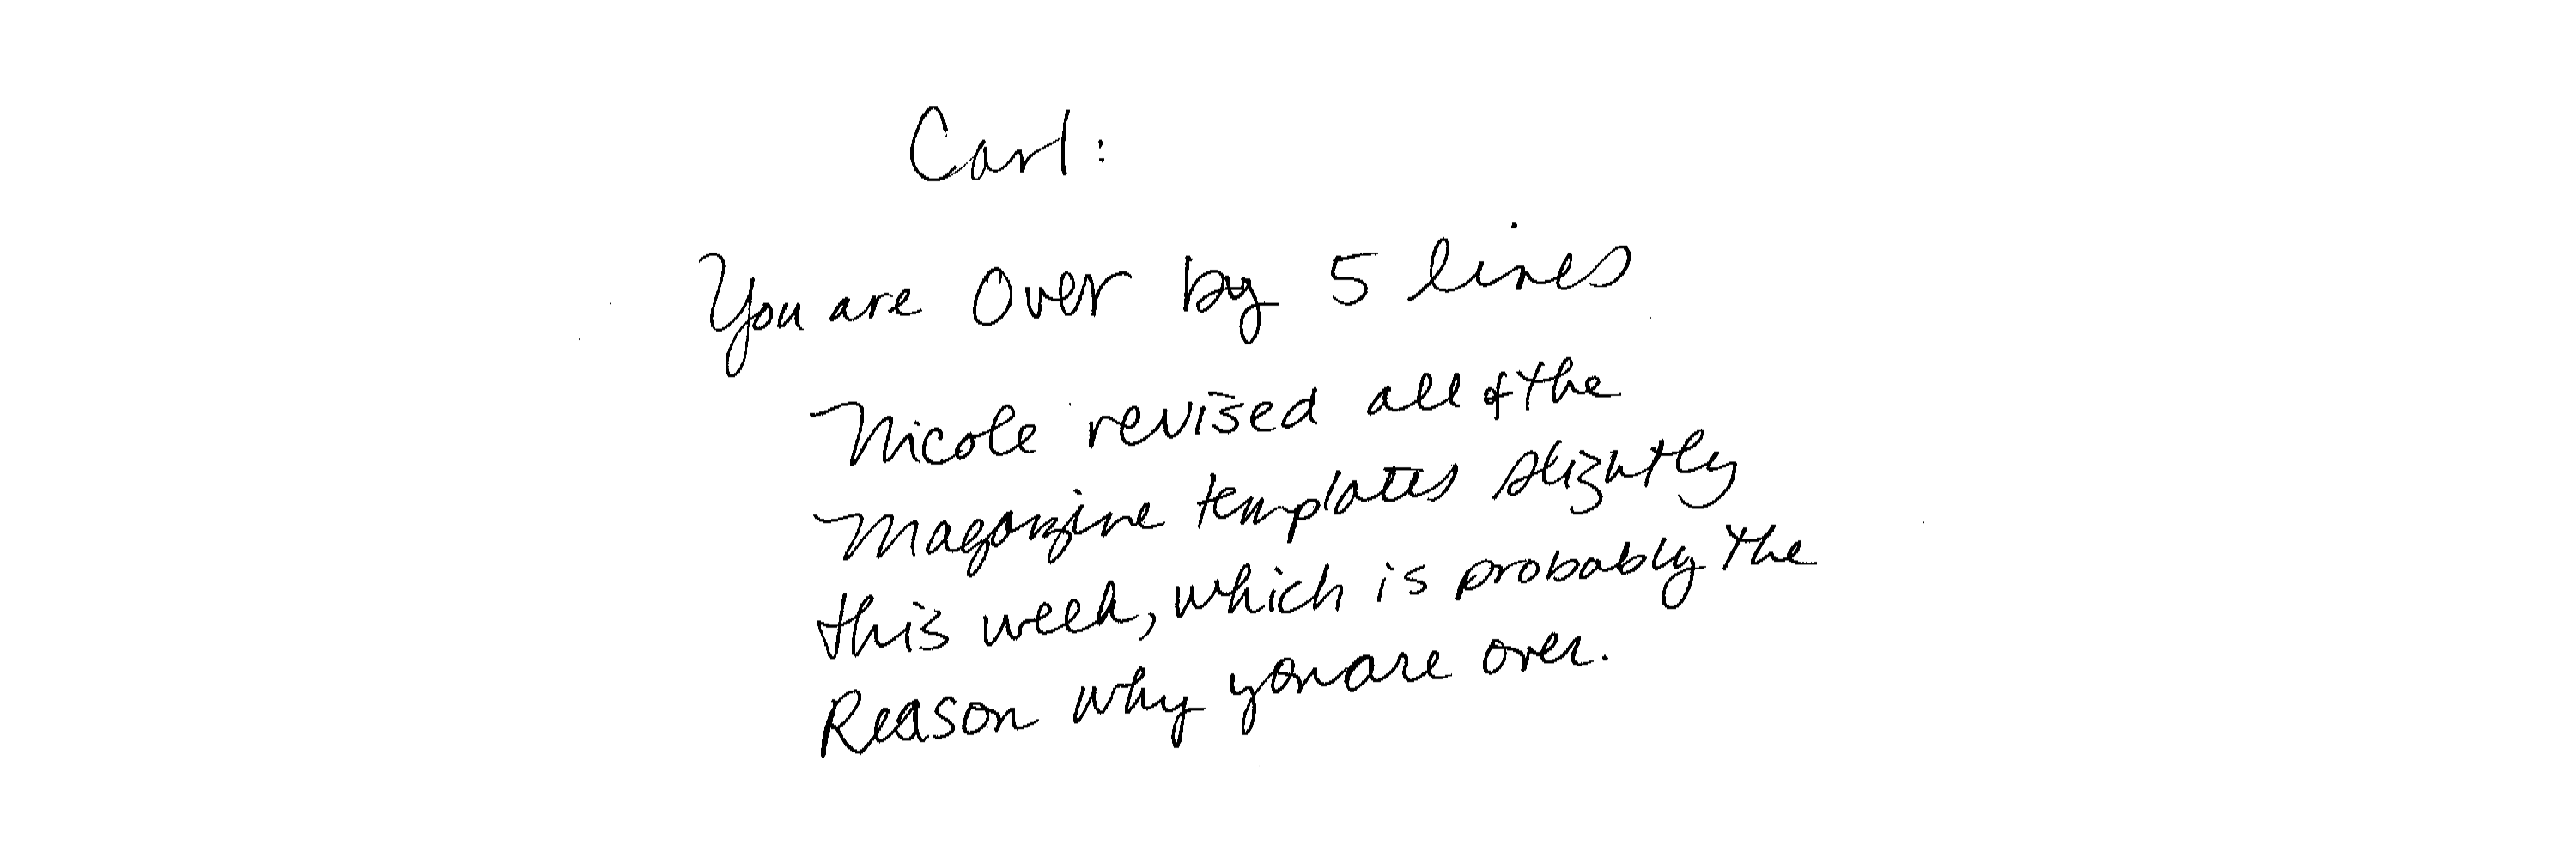 Carl:
You are Over by 5 lines
Nicole revised all of the
Magazine templates slightly
this week, which is probably the
Reason why you are over.